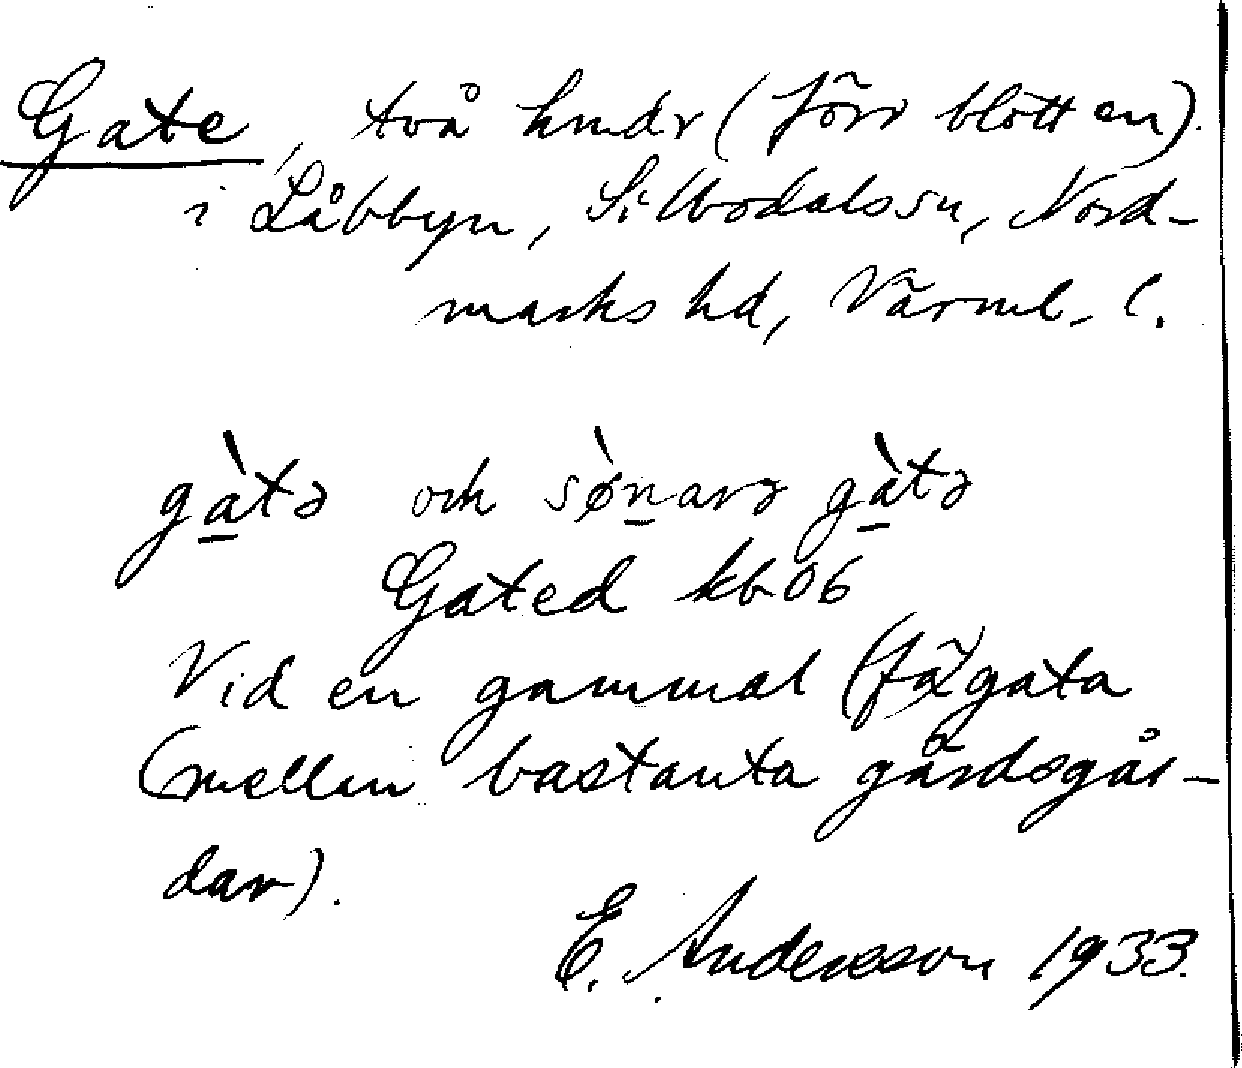 Gate, två hmdr (förr blott en).
i Låbbyn, Silbodals sn, Nord-
marks hd, Värml. l.
gàtə och sø̀narə gàtə
Gated kb 06
Vid en gammal (fä)gata
(mellan bastanta gärdsgår-
dar).
E. Andersson 1933.